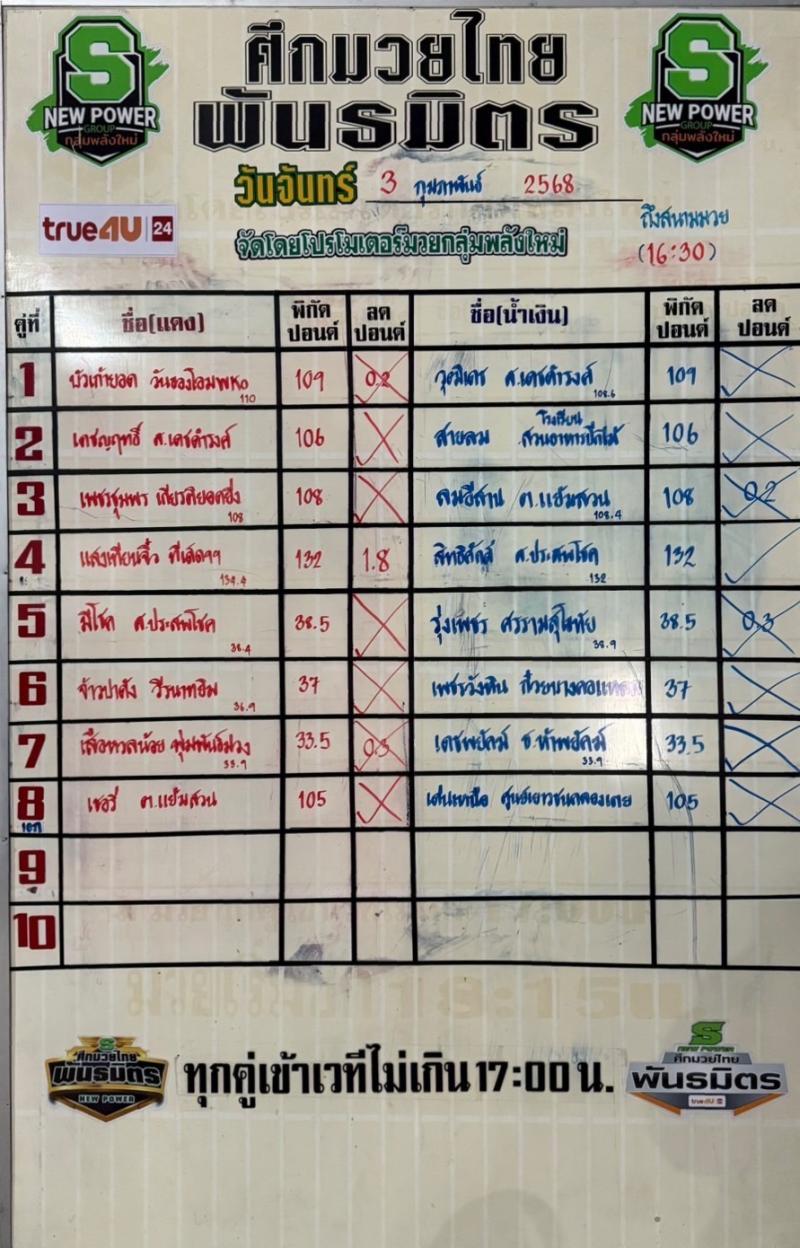 S
NEW POWER
GROUP
กลุ่มพลังใหม่
ศึกมวยไทย
พันธมิตร
S
NEW POWER
GROUP
กลุ่มพลังใหม่
วันจันทร์ 3 กุมภาพันธ์ 2568
true4U 24
จัดโดยโปรโมเตอร์มวยกลุ่มพลังใหม่
ถึงสนามมวย
(16:30)
คู่ที่ ชื่อ(แดง) พิกัดปอนด์ ลดปอนด์ ชื่อ(น้ำเงิน) พิกัดปอนด์ ลดปอนด์
1 บัวเก้ายอด วันชองโอมพKO 110 109 0.2 วุฒิเดช ศ.เดชดำรงค์ 108.6 109
2 เดชณฤทธิ์ ศ.เดชดำรงค์ 106 สายลม โรงเรียนสวนอาหารปีกไม้ 106
3 เพชรชุมพร เกียรติยอดยิ่ง 108 108 ลมอีสาน ต.แย้มสวน 108.4 108 0.2
4 แสงเทียนจิ๋ว ที่เด็ดฯฯ 134.4 132 1.8 สิทธิศักดิ์ ศ.ประสพโชค 132 132
5 มีโชค ศ.ประสพโชค 38.4 38.5 รุ่งเพชร ศรรามสุโขทัย 38.9 38.5 0.3
6 จ้าวป่าดัง วีรนาทอิม 36.9 37 เพชรวังหิน 37
7 เสือหวลน้อย พุ่มพันธ์ม่วง 33.9 33.5 0.3 เดชพยัคฆ์ ช.ห้าพยัคฆ์ 33.9 33.5
8 เอก เชอรี่ ต.แย้มสวน 105 เด่นเหนือ ศูนย์เยาวชนคลองเตย 105
9
10
ศึกมวยไทย
พันธมิตร
NEW POWER
ทุกคู่เข้าเวทีไม่เกิน 17:00 น.
S
NEW POWER
ศึกมวยไทย
พันธมิตร
true4U